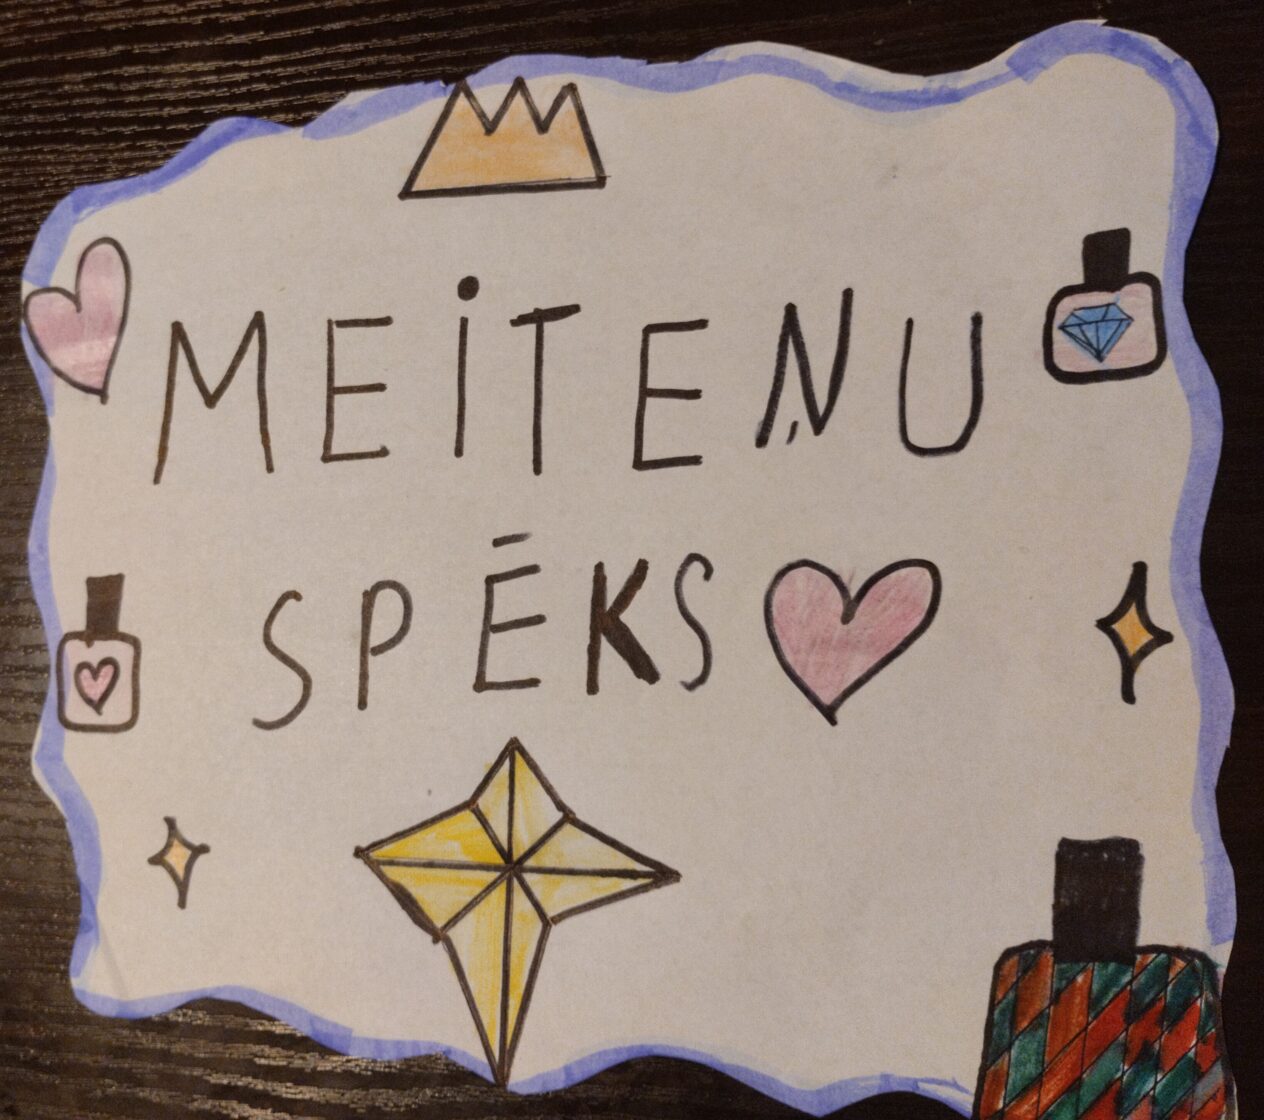 MEITEŅU
SPĒKS